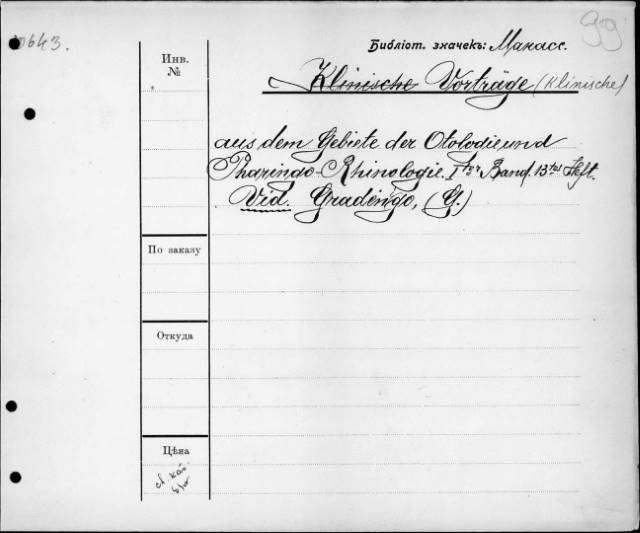 0643.
99
Библіот. значекъ: Манасс.
Инв.
№
Klinische Vorträge (Klinische)
aus dem Gebiete der Otolodie und
Pharingo-Rhinologie. I ter Band. 13 tes Heft.
Vid. Gradenigo, (G.)
По заказу
Откуда
Цѣна